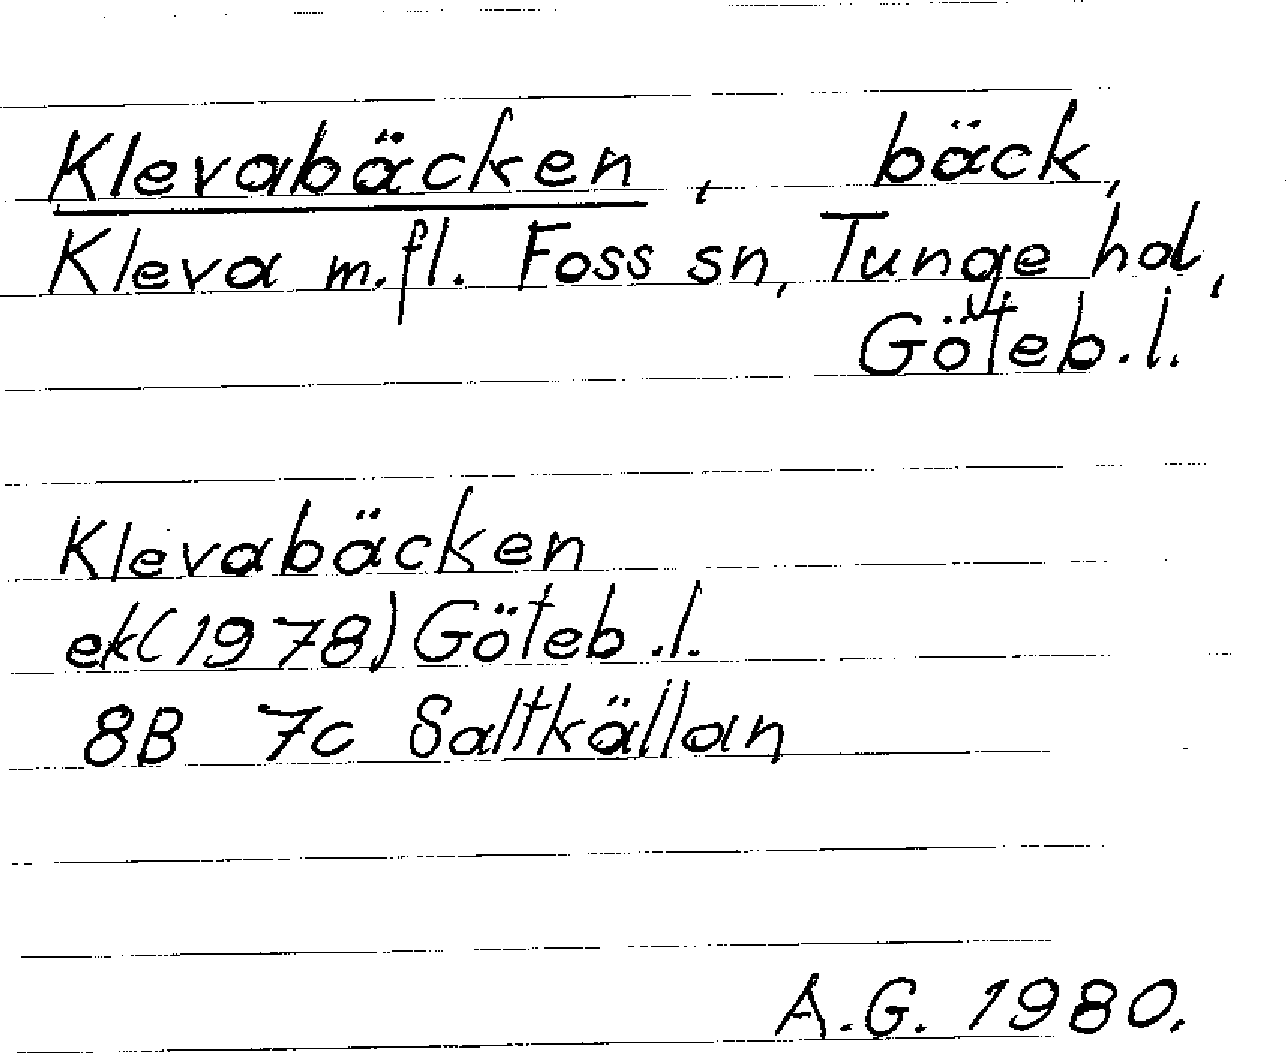 Klevabäcken, bäck,
Kleva m.fl. Foss sn, Tunge hd,
Göteb.l.
Klevabäcken
ek(1978) Göteb.l.
8B 7c Saltkällan
A.G. 1980.